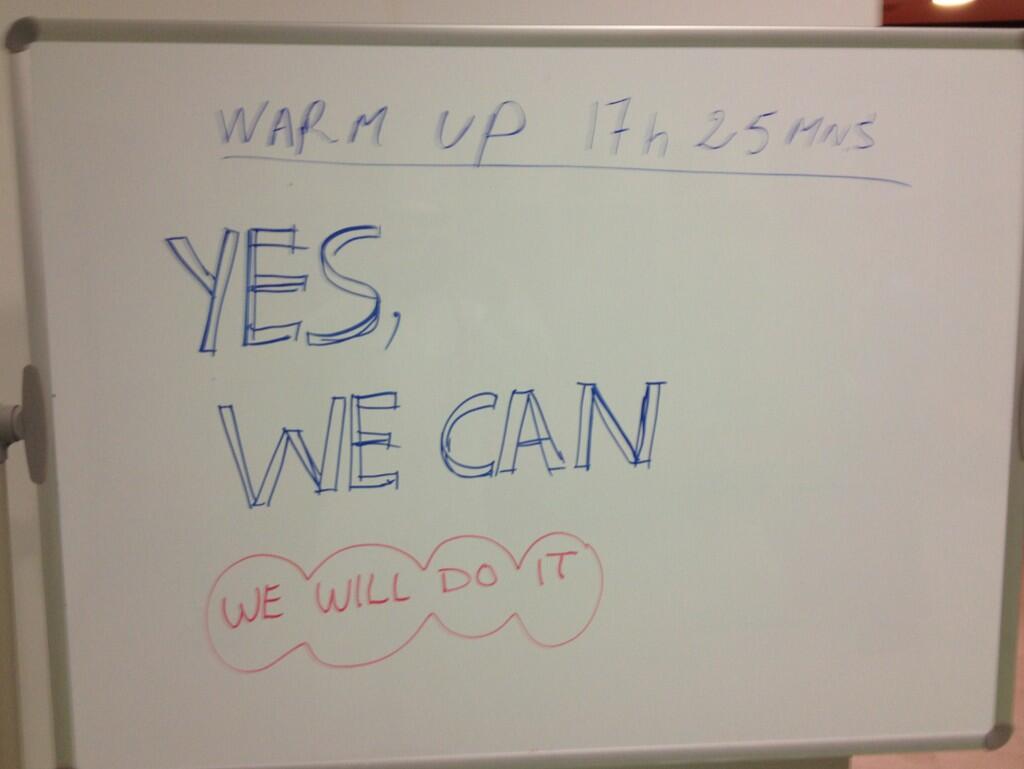 WARM UP 17h 25MNS
YES,
WE CAN
WE WILL DO IT